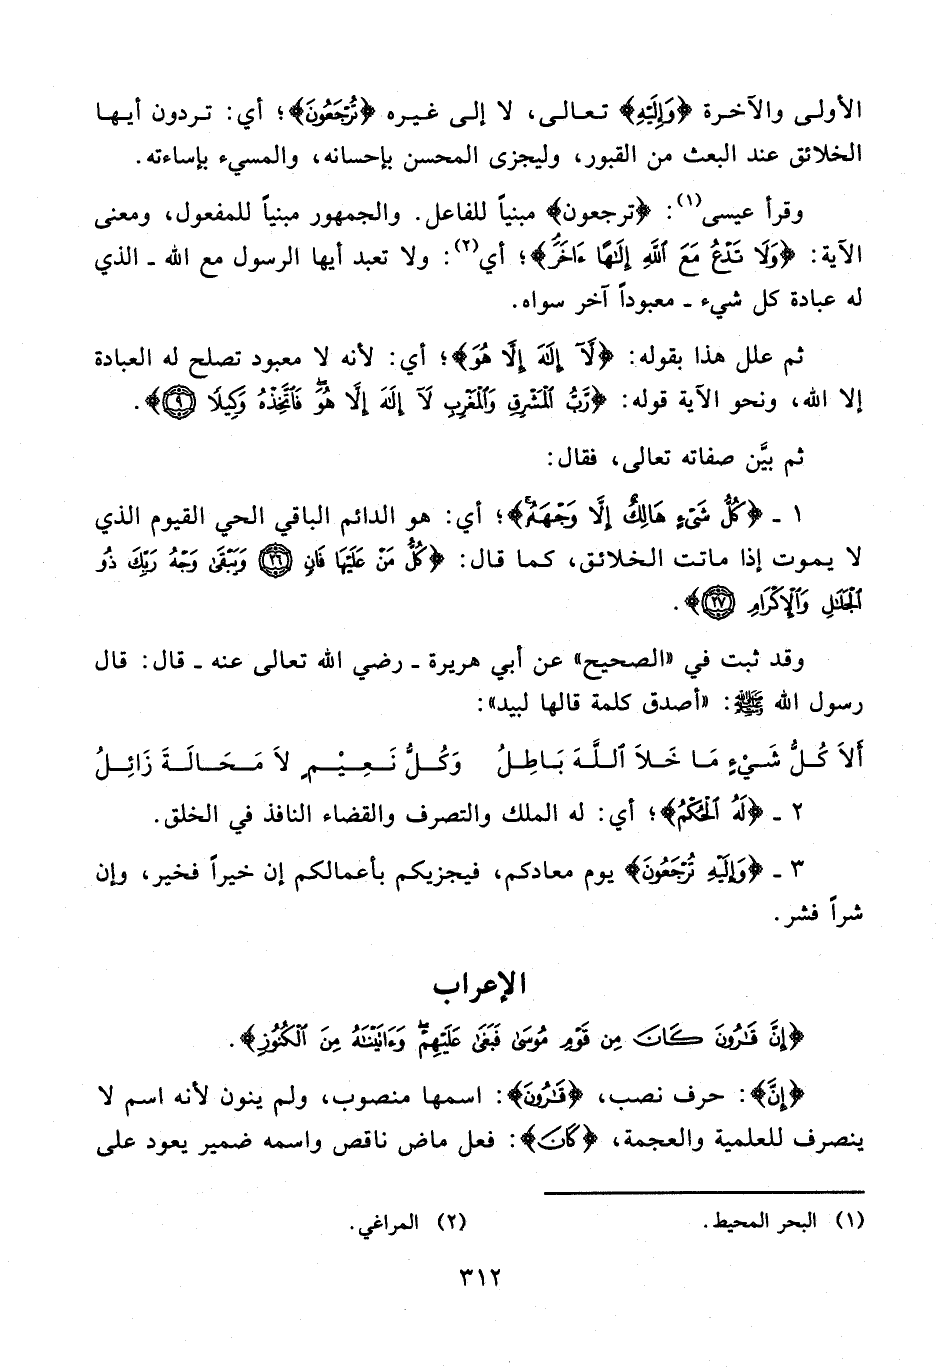 الأولى والآخرة ﴿وَإِلَيْهِ﴾ تعالى، لا إلى غيره ﴿تُرْجَعُونَ﴾؛ أي: تردون أيها
الخلائق عند البعث من القبور، وليجزى المحسن بإحسانه، والمسيء بإساءته.
وقرأ عيسى(١): ﴿ترجعون﴾ مبنياً للفاعل. والجمهور مبنياً للمفعول، ومعنى
الآية: ﴿وَلَا تَدْعُ مَعَ ٱللَّهِ إِلَٰهًا ءَاخَرَ﴾؛ أي(٢): ولا تعبد أيها الرسول مع الله ـ الذي
له عبادة كل شيء ـ معبوداً آخر سواه.
ثم علل هذا بقوله: ﴿لَآ إِلَٰهَ إِلَّا هُوَ﴾؛ أي: لأنه لا معبود تصلح له العبادة
إلا الله، ونحو الآية قوله: ﴿رَّبُّ ٱلْمَشْرِقِ وَٱلْمَغْرِبِ لَآ إِلَٰهَ إِلَّا هُوَ فَٱتَّخِذْهُ وَكِيلًا ٩﴾.
ثم بيَّن صفاته تعالى، فقال:
١ ـ ﴿كُلُّ شَىْءٍ هَالِكٌ إِلَّا وَجْهَهُۥ﴾؛ أي: هو الدائم الباقي الحي القيوم الذي
لا يموت إذا ماتت الخلائق، كما قال: ﴿كُلُّ مَنْ عَلَيْهَا فَانٍ ٢٦ وَيَبْقَىٰ وَجْهُ رَبِّكَ ذُو
ٱلْجَلَٰلِ وَٱلْإِكْرَامِ ٢٧﴾.
وقد ثبت في «الصحيح» عن أبي هريرة ـ رضي الله تعالى عنه ـ قال: قال
رسول الله ﷺ: «أصدق كلمة قالها لبيد»:
أَلاَ كُلُّ شَيْءٍ مَا خَلاَ ٱللَّهَ بَاطِلُ وَكُلُّ نَعِيْمٍ لاَ مَحَالَةَ زَائِلُ
٢ ـ ﴿لَهُ ٱلْحُكْمُ﴾؛ أي: له الملك والتصرف والقضاء النافذ في الخلق.
٣ ـ ﴿وَإِلَيْهِ تُرْجَعُونَ﴾ يوم معادكم، فيجزيكم بأعمالكم إن خيراً فخير، وإن
شراً فشر.
الإعراب
﴿إِنَّ قَٰرُونَ كَانَ مِن قَوْمِ مُوسَىٰ فَبَغَىٰ عَلَيْهِمْ وَءَاتَيْنَٰهُ مِنَ ٱلْكُنُوزِ﴾.
﴿إِنَّ﴾: حرف نصب، ﴿قَٰرُونَ﴾: اسمها منصوب، ولم ينون لأنه اسم لا
ينصرف للعلمية والعجمة، ﴿كَانَ﴾: فعل ماض ناقص واسمه ضمير يعود على
(١) البحر المحيط. (٢) المراغي.
٣١٢